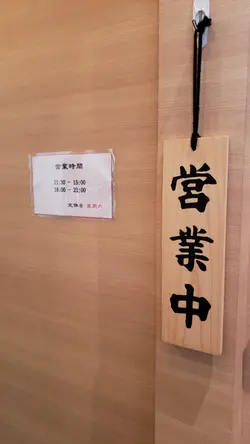 営業時間
11:30 - 15:00
18:00 - 21:00
定休日
営業中